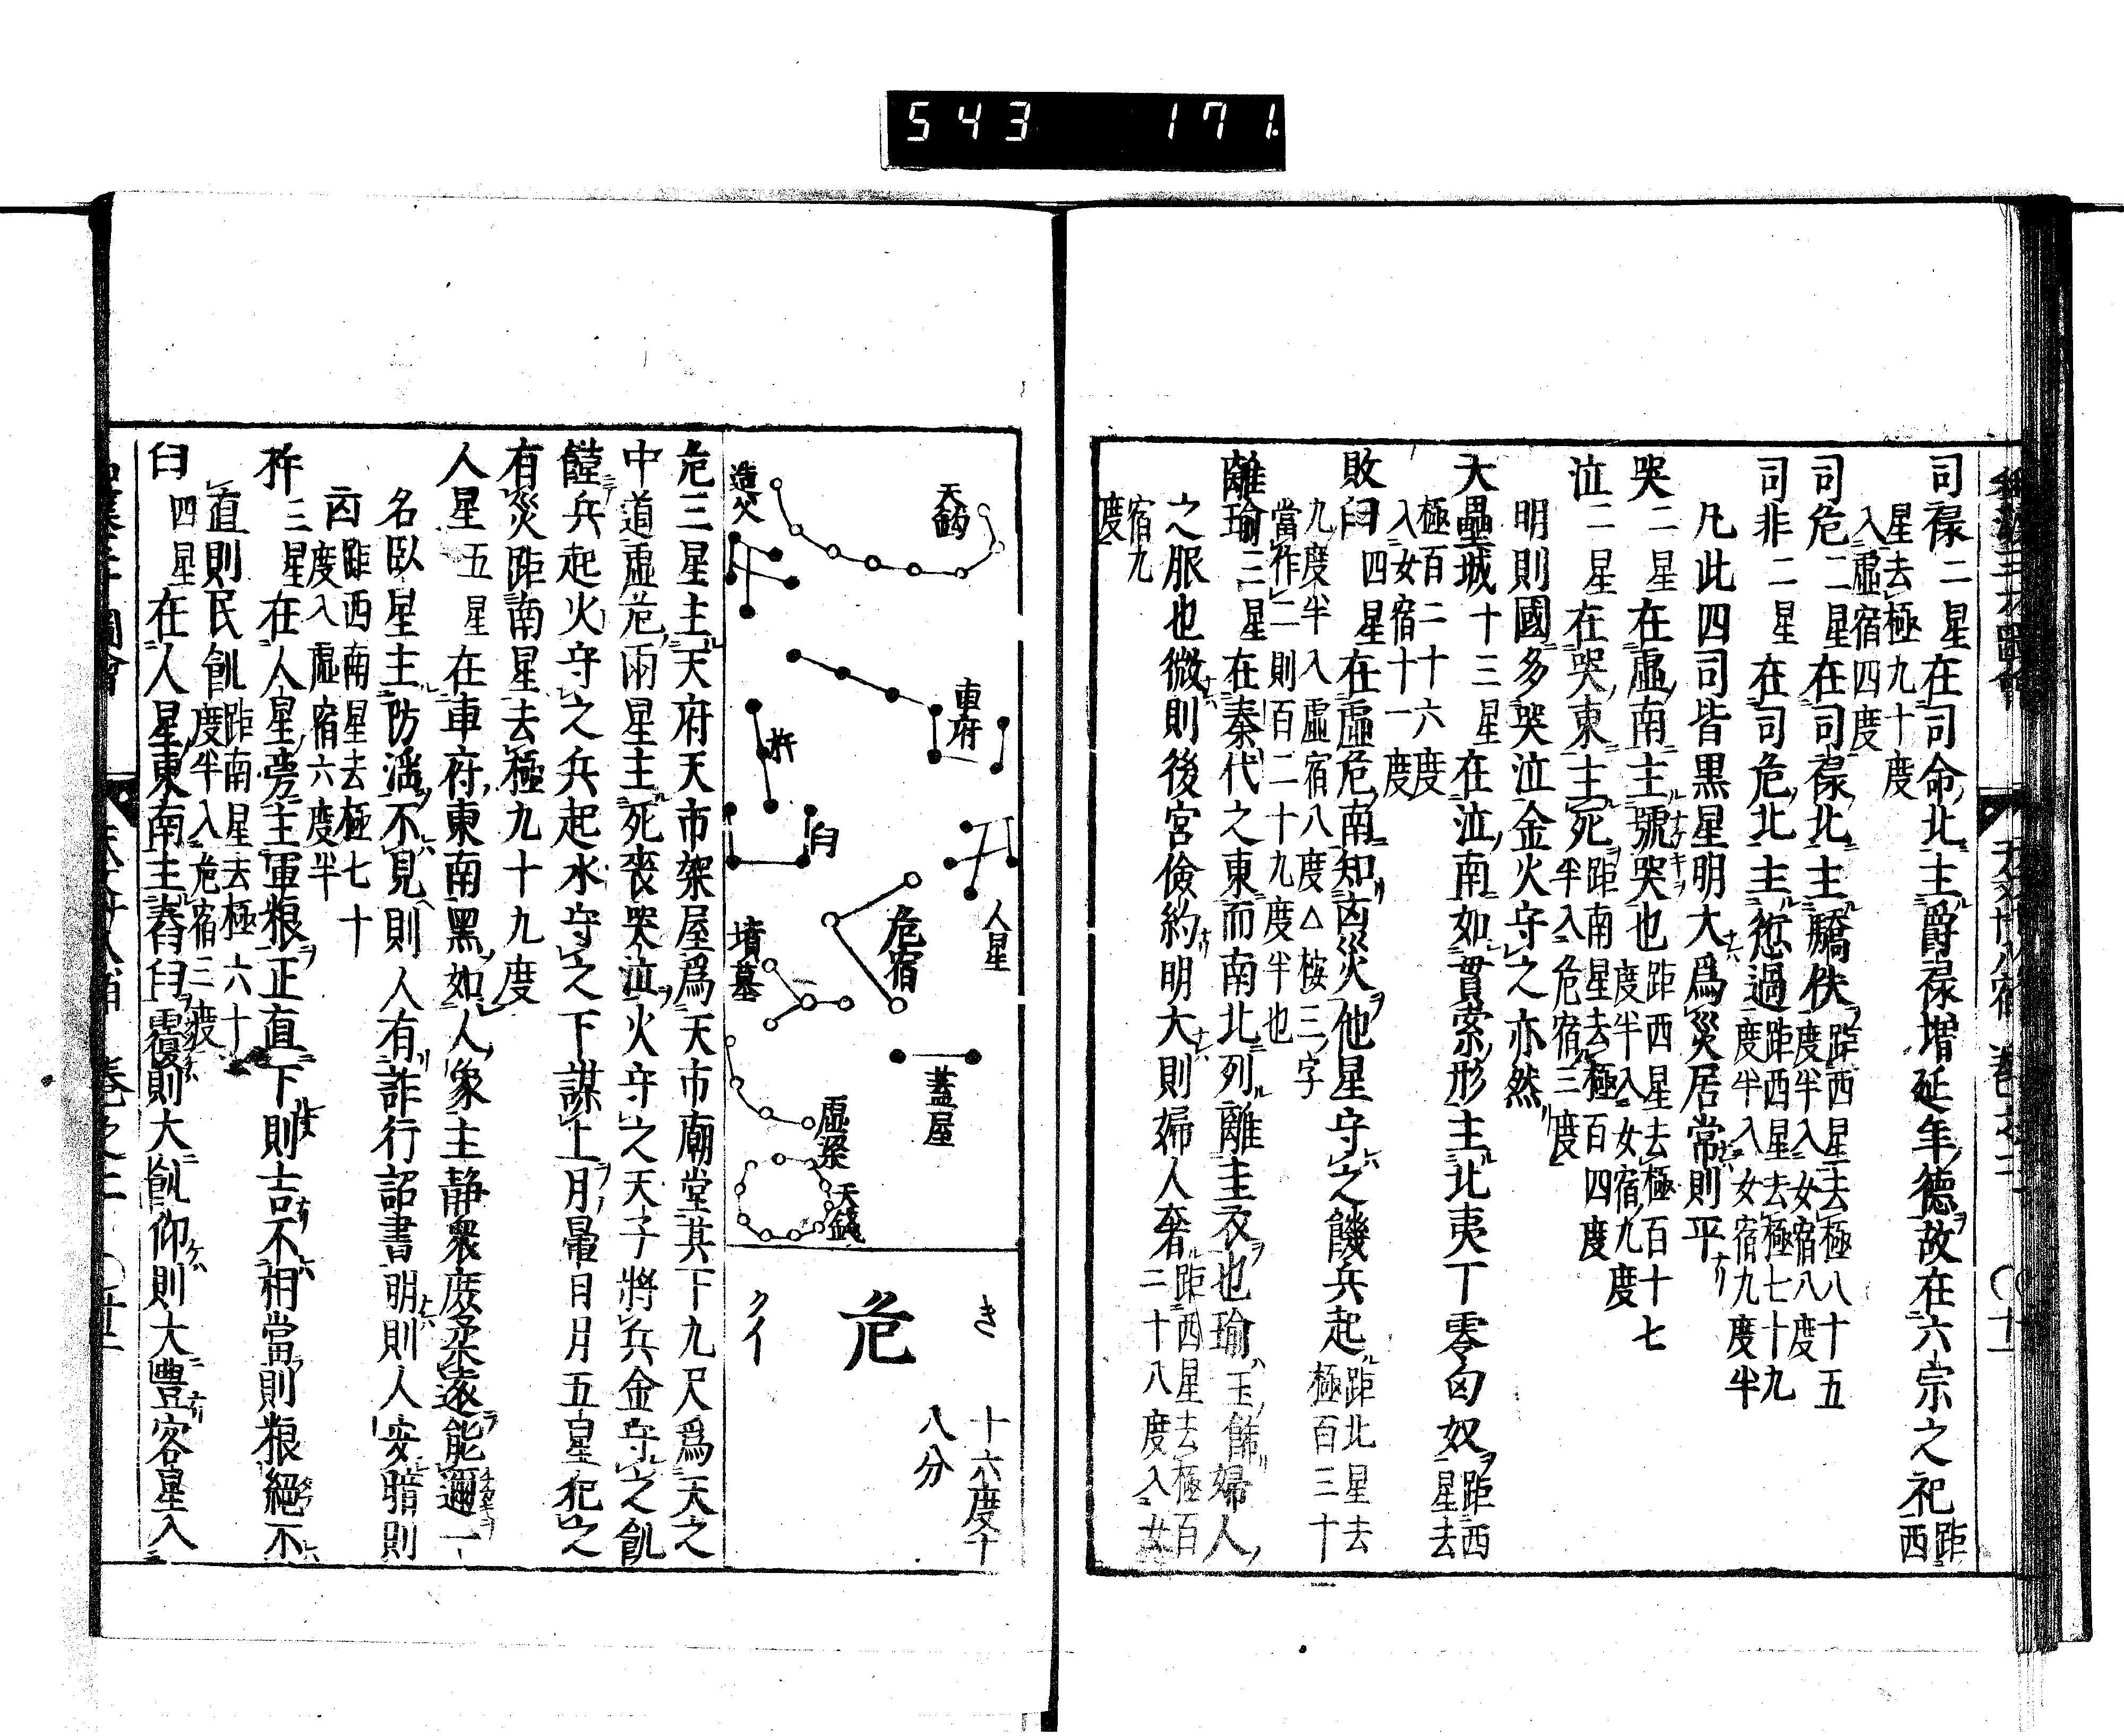 543 171.
司祿二星在司命北主爵祿增延年德故在六宗之祀距西
星去極九十度
入虛宿四度
司危二星在司祿北主驕佚距西星去極八十五
度半入女宿八度
司非二星在司危北主愆過距西星去極七十九
度半入女宿九度半
凡此四司皆黒星明大爲災居常則平
哭二星在虛南主號哭也距西星去極百十七
度半入女宿九度
泣二星在哭東主死距南星去極百四度
半入危宿三度
明則國多哭泣金火守之亦然
天壘城十三星在泣南如貫索形主北夷丁零匈奴距西星去
極百二十六度
入女宿十一度
敗臼四星在虛危南知凶災他星守之饑兵起距北星去極百三十
九度半入虛宿八度△按三字
當作二則百二十九度半也
離瑜三星在秦代之東而南北列離圭衣也瑜玉餙婦人
之服也微則後宮儉約明大則婦人奢距西星去極百二十八度入女
宿九
度
天鈎
造父
車府
杵
臼
人星
危宿
墳墓
蓋屋
虛梁
天錢
き
危
クイ
十六度十
八分
危三星主天府天市架屋爲天市廟堂其下九尺爲天之
中道虛危兩星主死喪哭泣火守之天子將兵金守之飢
饉兵起火守之兵起水守之下謀上月暈日月五星犯之
有災距南星去極九十九度
人星五星在車府東南黑如人象主靜衆庶柔遠能邇一
名臥星主防淫不見則人有詐行詔書明則人安暗則
凶距西南星去極七十
度入虛宿六度半
杵三星在人星旁主軍粮正直下則吉不相當則粮絕不
直則民飢距南星去極六十
度半入危宿三度
臼四星在人星東南主舂臼覆則大飢仰則大豐客星入